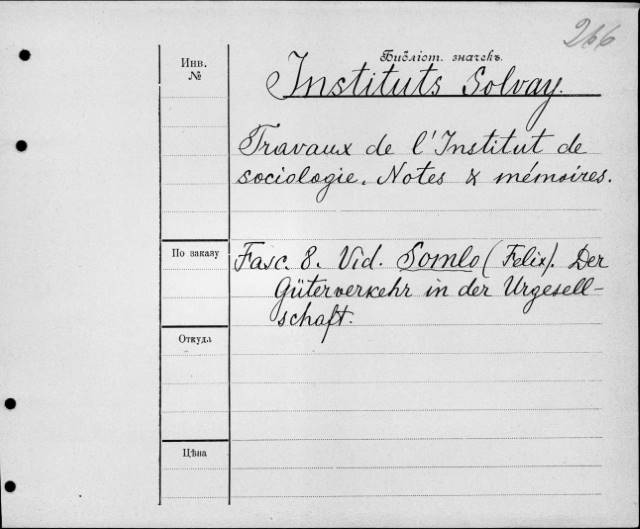 266
Инв.
№
Библіот. значекъ.
Instituts Solvay.
Travaux de l'Institut de
sociologie. Notes & mémoires.
По заказу
Fasc. 8. Vid. Somlo (Felix). Der
Güterverkehr in der Urgesell-
schaft.
Откуда
Цѣна